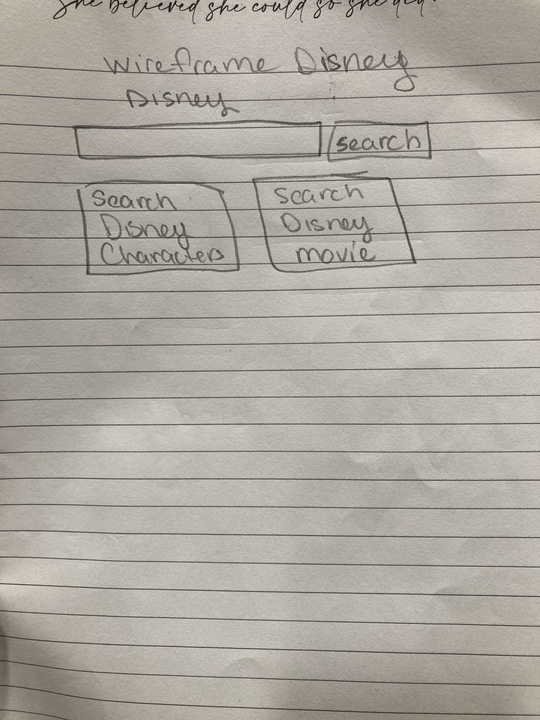 She believed she could so she did.
Wireframe Disney
Disney
search
Search
Disney
Characters
Search
Disney
movie